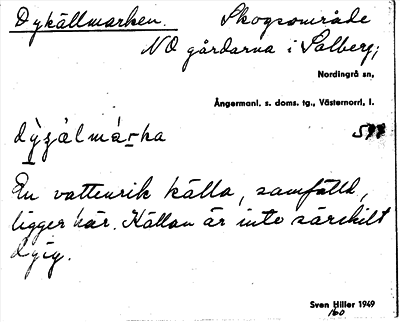 Dykällmarken. Skogsområde
NO gårdarna i Salberg;
Nordingrå sn,
Ångermanl. s. doms. tg., Västernorrl, l.
En vattenrik källa, samfälld,
ligger här. Källan är inte särskilt
dyig.
Sven Hiller 1949
160